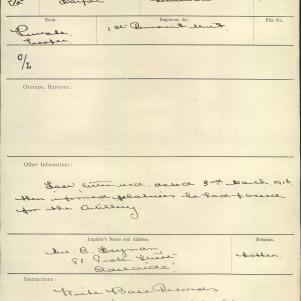 Rank.
Regiment, &c.
File No.
Private
1st Remount Unit
Trooper
C/L
OFFICIAL REPORTS:
Other Information:
Last letter recd. dated 3rd March 916
then informed relatives he had passed
for the Artillery
Inquirer's Name and Address.
Relation.
Mrs. C. Hayman
Street
Mother
Adelaide
Instructions:
Write Base Records